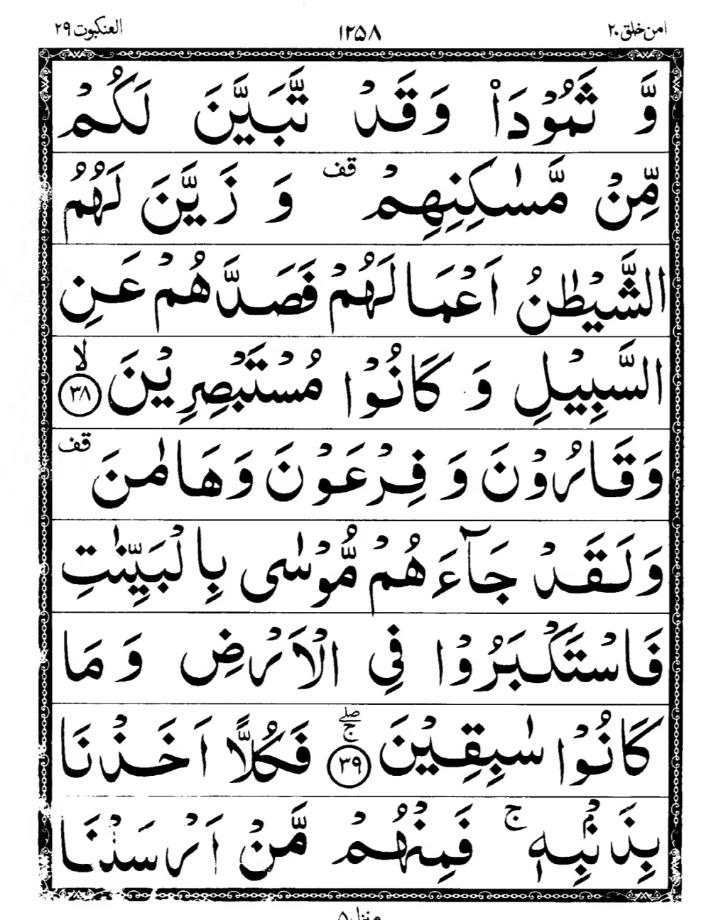 امن خلق ۲۰ ۱۲۵۸ العنکبوت ۲۹
وَّ ثَمُوْدَا۠ وَقَدْ تَّبَيَّنَ لَكُمْ
مِّنْ مَّسٰكِنِهِمْ ۫قف وَ زَيَّنَ لَهُمُ
الشَّيْطٰنُ اَعْمَالَهُمْ فَصَدَّهُمْ عَنِ
السَّبِيْلِ وَ كَانُوْا مُسْتَبْصِرِيْنَ ۙ﴿۳۸﴾
وَقَارُوْنَ وَ فِرْعَوْنَ وَهَامٰنَ قف
وَلَقَدْ جَآءَهُمْ مُّوْسٰى بِالْبَيِّنٰتِ
فَاسْتَكْبَرُوْا فِى الْاَرْضِ وَ مَا
كَانُوْا سٰبِقِيْنَ ۖۚ﴿۳۹﴾ فَكُلًّا اَخَذْنَا
بِذَنْۢبِهٖ ۚ فَمِنْهُمْ مَّنْ اَرْسَلْنَا
منزل ۵